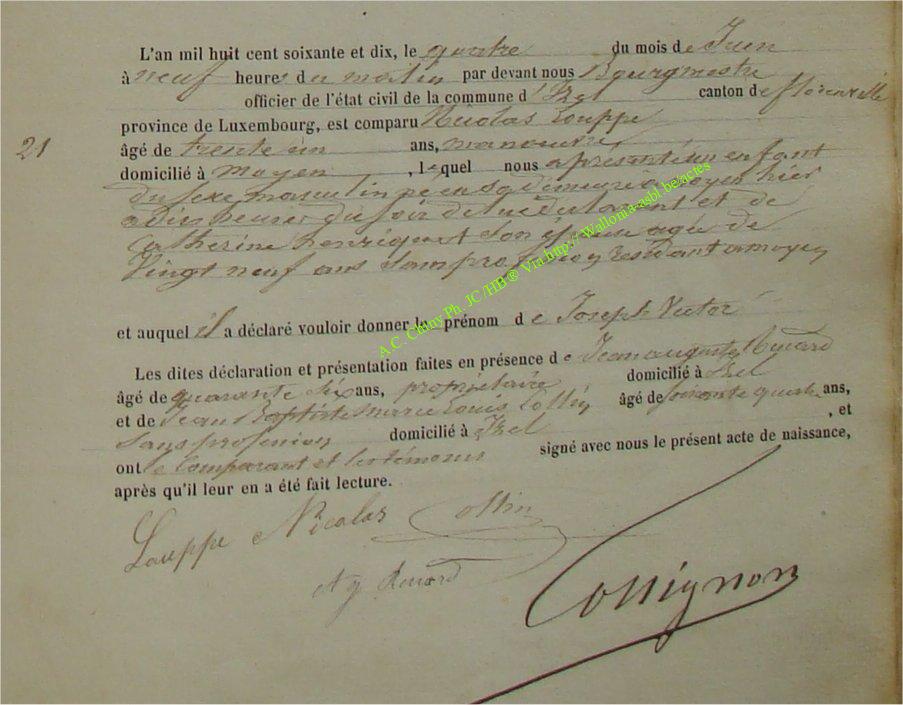 L'an mil huit cent soixante et dix, le quatre du mois de Juin
à neuf heures du matin par devant nous Bourgmestre
officier de l'état civil de la commune d'Izel canton de florenville
province de Luxembourg, est comparu Nicolas Louppe
21 âgé de trente un ans, manoeuvre
domicilié à moyen, lequel nous a présenté un enfant
du sexe masculin né en sa demeure à moyen hier
a dix heures du soir de lui déclarant et de
Catherine henriquet son épouse agée de
Vingt neuf ans sans profession residant a moyen
et auquel il a déclaré vouloir donner le prénom de Joseph Victor
Les dites déclaration et présentation faites en présence de Jean auguste Renard
âgé de quarante six ans, propriétaire domicilié à Izel
et de Jean Baptiste marie Louis Collin âgé de soixante quatre ans,
sans profession domicilié à Izel, et
ont le comparant et les témoins signé avec nous le présent acte de naissance,
après qu'il leur en a été fait lecture.
Louppe Nicolas Collin
Aug Renard
Collignon
A.C. Chiny Ph. JC /HB ® Via http://Wallonia-asbl.be/actes